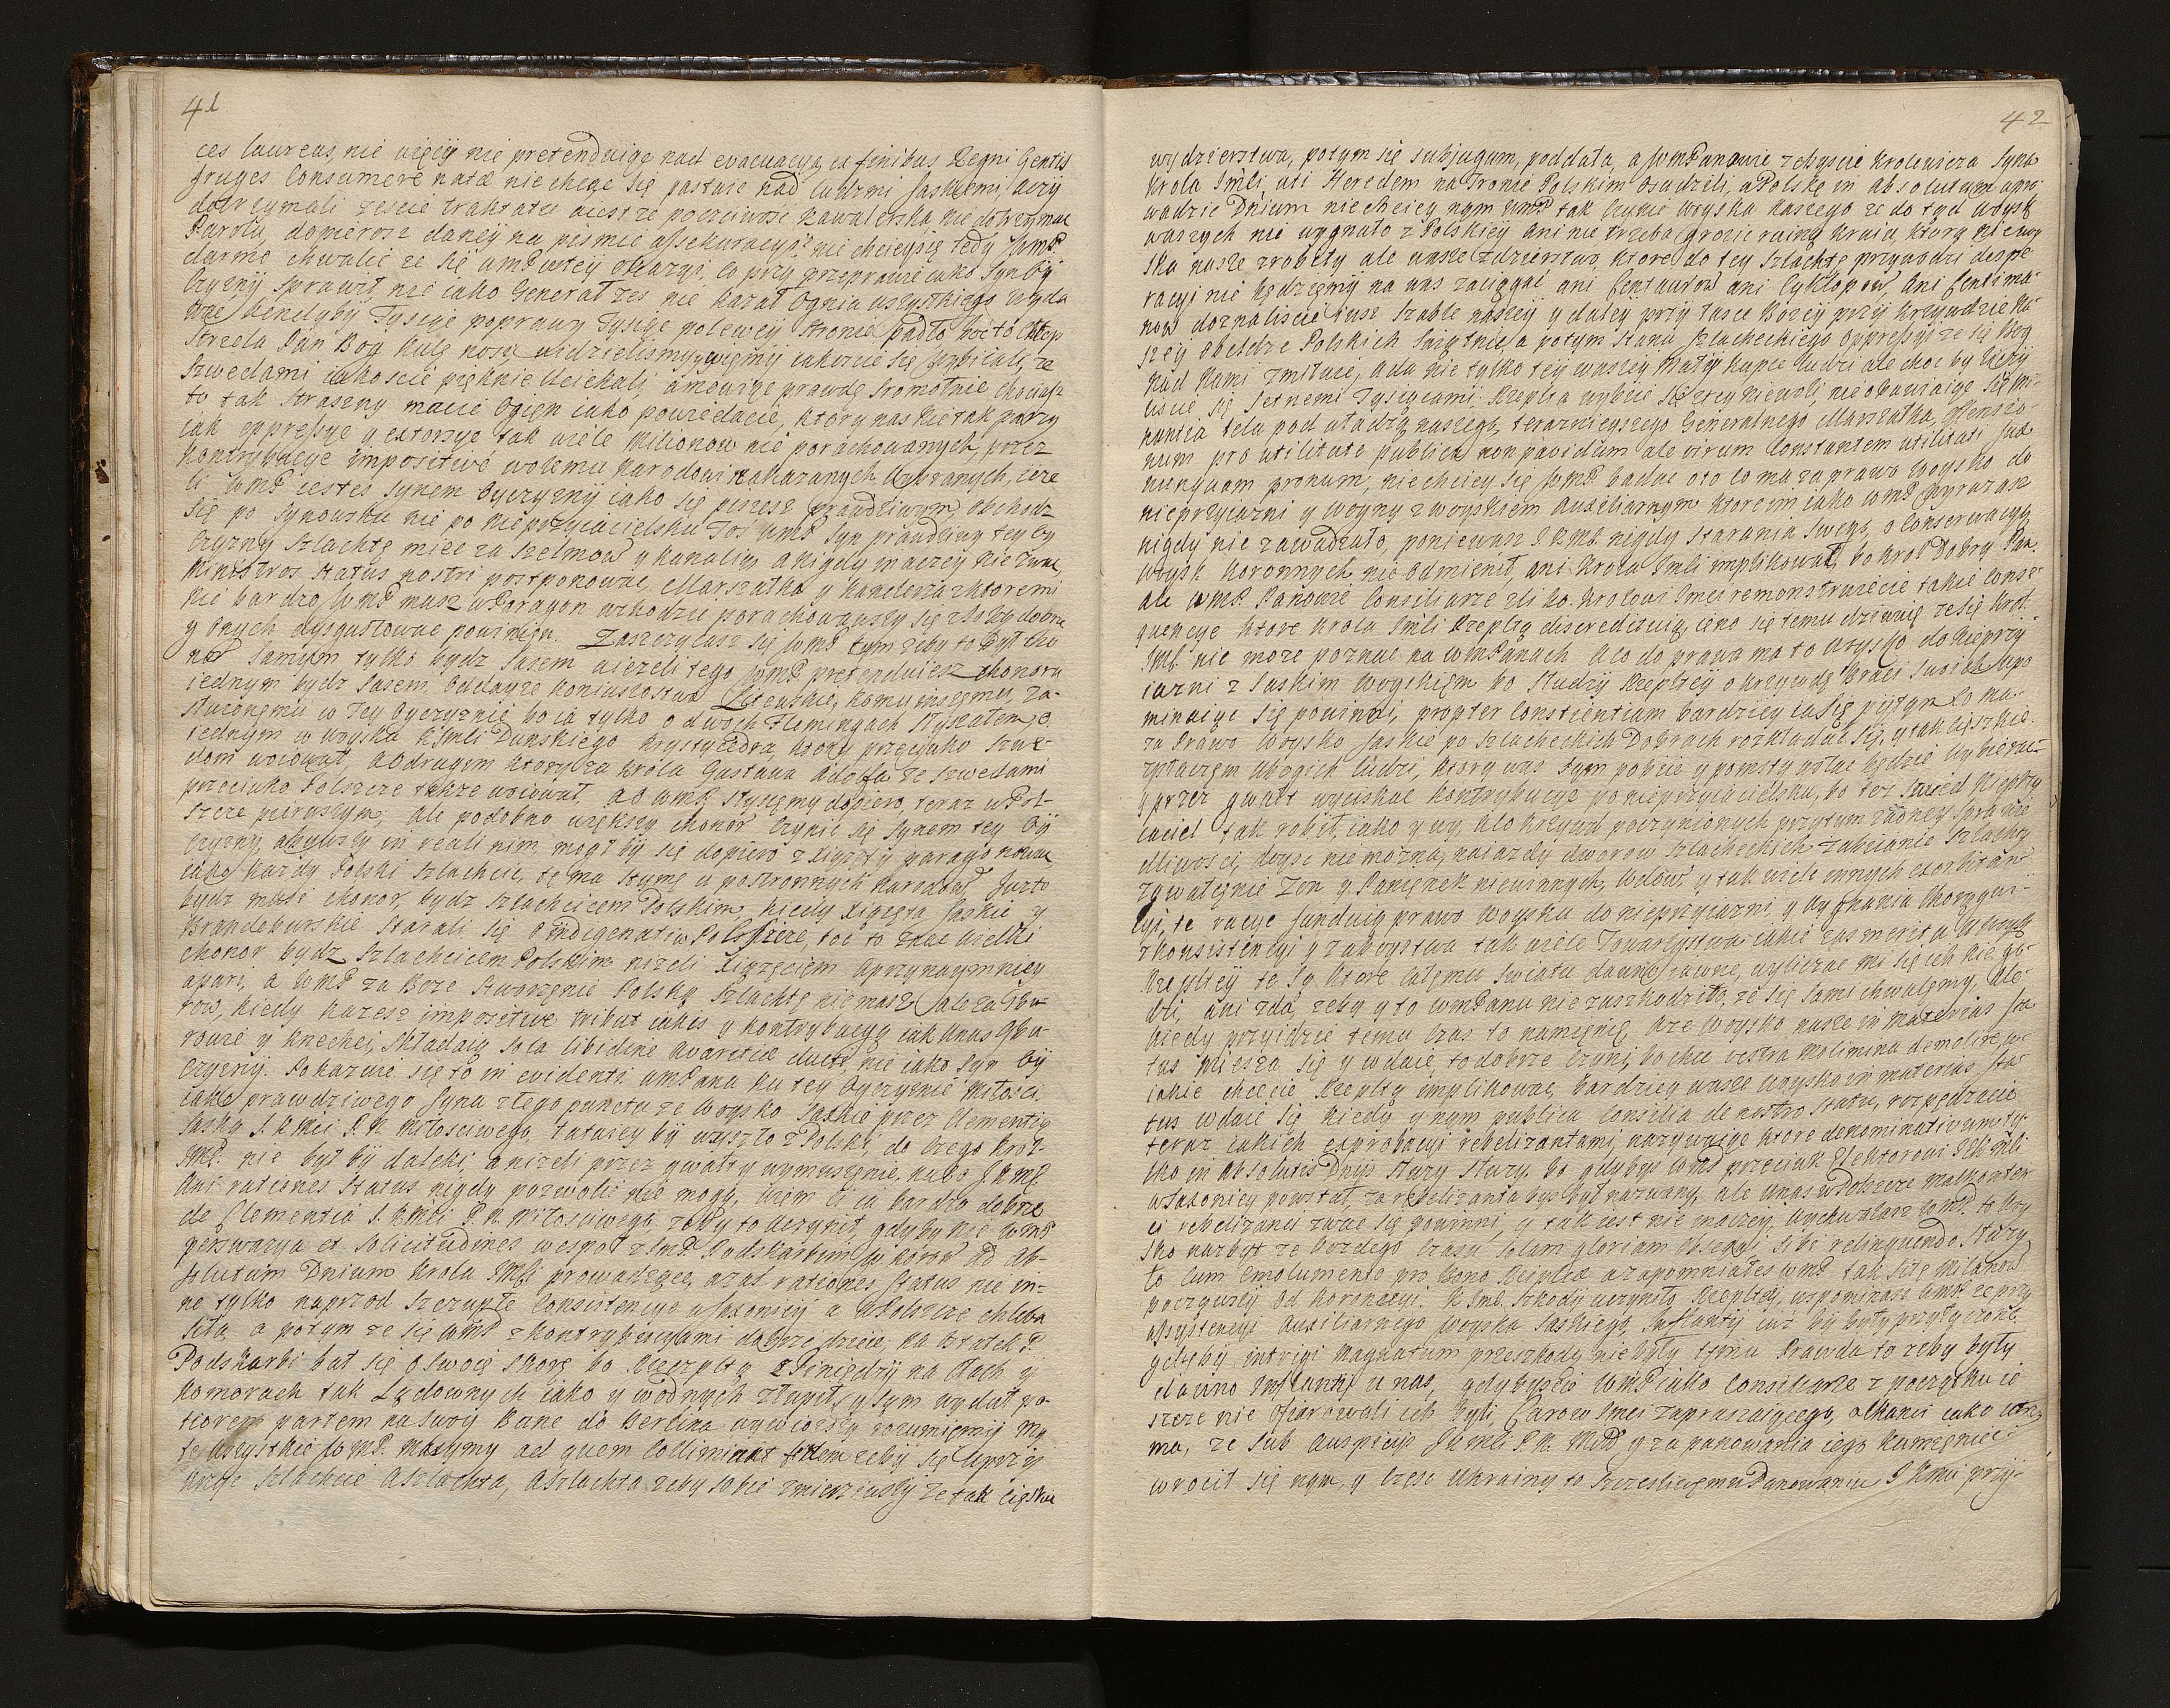 41
ces laureas, nie więcy nie pretenduiąc nad evacuacyą ex finibus Regni Gentis
fruges Consumere natæ nie chcąc się pastwic nad ludzmi Saskiemi, aczy
dotrzymali zescie traktatu wiest ze poczciwosc kawalerska nie dotrzymac
Parolu, dopierosz daney na pismie assekuracyi? nie chcieysię tedy WmP
darmo chwalic ze się WmP wtey okazyi, co przy przeprawie iako Syn Oy
czyzny sprawił, nie iako Generał zes nie kazał Ognia wszystkiego wyda
wac, kiedyby Tysiąc poprawy Tysiąc polewey stronie padło, boc to Chłop
strzela Pan Bog kule nosi, widzielismy y wiemy iakoscie się wybiiali, ze
Szwedami iakoscie pięknie Uciekali, a mowiąc prawdę sromotnie, chociasz
to tak straszny macie Ogien iako powiedacie, ktory nas nie tak parzy
iak oppressye y extorsye tak wiele Milionow nie porachowanych, przez
kontrybucye impositivé wolemu Narodowi nakazanych, Wybranych, ieze
li WmP iestes Synem Oyczyzny iako się piszesz prawdziwym, obchodz
się po Synowsku nie po Nieprzyiacielsku Toś WmP Syn prawdziwy tey Oy
czyzny Szlachtę miec za Szelmow y kanalią a nigdy inaczey nie zwac,
Ministros Status nostri postponowac, Marszałka y Kanclerza z ktoremi
nie bardzo WmP masz w Paragon wchodzic porachowawszy się z sobą dobrze
y onych dysgustowac powinien. Zaszczycasz się WmP tym zeby to był cho
nor Samym tylko bydz Sasem ai ezeli tego WmP pretenduiesz chonoru
iednym bydz Sasem, Oddayze Koniuszostwo Litewskie, komu inszemu, za-
słuzonemu w Tey Oyczyznie bo ia tylko o dwoch Flemingach słyszałem, o
iednym w woysku K Jmli Dunskiego krystyerna, ktory przeciwko Szwe-
dom woiował, a o drugim ktory za Króla Gustawa Adolfa ze Szwedami
przeciwko Polszcze takze woiował, a o WmP słyszemy dopiero teraz w Pol-
szcze pierwszym, ale podobno większy chonor czynic się Synem tey Oy
czyzny, abywszy in reali nim, mogł by się dopiero z Xięzęty paragonowac
iako kazdy Polski Szlachcic te ma stymę u postronnych Narodow. Juzto
bydz musi chonor bydz Szlachcicem Polskim, kiedy Xiązęta Saskie y
Brandeburskie starali się o Indigenat w Polszcze, toc to znac wielki
chonor bydz Szlachcicem Polskim nizeli Xiązęciem aprzynaymniey
a pari, a WmP za Boze stworzenie Polską Szlachtę nie masz, ale za Gbu-
row, kiedy kazesz impositive tribut iakis y kontrybucyą iak Unas Gbu-
rowie y knechci, składaią sola libidine avaritia ducti nie iako Syn Oy
czyzny. Pokazuie się to in evidenti WmPana ku tey Oyczyznie Miłości
iako prawdziwego Syna z tego punctu ze Woysko Saskie przez Clementią
Saską J. K Mci P. N. Miłosciwego, łatwiey by wyszło z Polski, do czego krol
JmP. nie był by daleki, a nizeli przez gwałty wymuszenie, na co J. K mP.
Ani rationes Status nigdy pozwolic nie mogą, wiem ci ia bardzo dobrze
de Clementia J. K Mci P. N. Miłosciwego, zeby to uczynił, gdyby nie WmP
perswazya et solicitudines wespoł z ImP. Podskarbim w koron ad ab-
solutum Dnium Krola JMci prowadzące, azas rationes Status nie in-
ne tylko naprzod szczupłe Consistencye w Saxoniey a w Polszcze chleba
siła, a potym ze się WmP z kontrybucyami dobrze dzieie, na Ostatek P.
Podskarbi bał się o swoię skorę bo Rzeczpltą z Pieniędzy na Cłach y
Komorach tak Lądownych iako y wodnych złupił, y sym wydał po-
tiorem partem na swoy Bane do Berlina wywiozszy rozumiemy My
te wszystkie WmP. Maxymy ad quem collimant finem zeby się Uprzy
krzył Szlachcie a Szlachta, a Szlachta zeby sobie zmierziwszy ze tak cięszkie
42
wydzierstwa, potym się subjugum, poddała, a WmPanowie zebyscie Krolewicza Syna
Krola JmCi, uti Heredem na Tronie Polskim osadzili, a Polskę in absolutum wpro-
wadzic Dnium niechciey nym WmP tak czynic Woysku naszego ze do tąd Woysk
waszych nie wygnało z Polskiey ani nie trzeba grozic ruiną kraiu, ktorą nie woy
ska nasze zrobiły ale wasze zdzierstwo, ktore do tey Szlachtę przywodzi despe
racyi nie będziemy na was zaciągac ani Centaurow ani Cyklopow, ani Centima
now doznaliscie iusz szable naszey y daley przy łasce Bozey przy krzywdzie na
szey obeldze Polskich Swiątnic, a potym stanu Szlacheckiego oppressyi ze się Bog
nad nami zmiłuie, a da nie tylko tey waszey małey kupie ludzi ale choc by liczy
liscie się setnemi Tysiącami, Rzeplta wybicie się z tey niewoli nie obawiaiąc się mi-
nantia tela pod władzą naszego, terazniejszego Generalnego Marszałka, offensio-
num pro utilitate publica non pavidum ale virum Constantem utilitati suæ
nunquam pronum, niechciey się WmP badac oto co ma zaprawo woysko do
nieprzyiazni y Woyny z woyskiem Auxiliarnym ktore im iako WmP wyrazasz
nigdy nie zawadzało, poniewasz J K MP. nigdy starania swego, o Conserwacyą
Woysk koronnych nie odmienił, ani Krola Jmli implikował, bo krol dobry Pan.
ale WmP. Panowie Consiliarze zli ko. krolowi Jmci remonstruiecie takie Conse-
quencye ktore Krola Jmli Rzepltą discredituią, ieno się temu dziwuię ze się krol
JMP. nie moze poznac na WmPanach a co do prawa ma to Woysko do nieprzy
iazni z Saskim Woyskiem bo studzy Rzepltey o krzywdę Braci swoich upo
minaiąc się powinni, propter Constientiam bardziey ia się pytym co ma
za Prawo Woysko Saskie po Szlacheckich Dobrach rozkładac się, y tak cięszkie
z płaczem Ubogich ludzi, ktory was tym pobiie y pomsty wołac będzie wybierac
y przez gwałt wyciskac kontrybucye po nieprzyiacielsku, bo tez Szwed Nieprzy
iaciel tak robił, iako y wy, a co krzywd poczynionych przytym zadney sprawie
dliwosci, doysc nie mozna, naiazdy dworow Szlacheckich zabiianie Szlachty
zgwałcenie Zon y Panienek niewinnych, Wdow y tak wiele innych exorbitan
cyi, te racye funduią prawo Woysku do nieprzyiazni y wygnania Chorągwi
z konsistencyi y zaboystwa tak wiele Towarzystwa iakie zas merita Waszych
Rzepltey te są ktore całemu Swiatu dawno iawne, wyliczac mi się ich nie go-
dzi, ani zda, zeby y to WmPanu nie zaszkodziło, ze się sami chwalemy, ale
kiedy przyidzie temu czas to namienię. Aze Woysko nasze in materias sta
tus miesza się y wdaie, to dobrze czyni, bo chce vestra Molimina demolire w
iakie chcecie Rzepltą implikowac, bardziey wasze woysko in materias sta
tus wdaie się kiedy y nym publica Consilia de nostro statu, rozpędzacie
teraz iakich exprobacyi rebelizantami, nazywaiąc ktore denominativum ty-
lko in Absolutis Dnijs słuzy Stary, bo gdybys WmP przeciwk Elektorowi J K Mli
w Saxoniey powstał, za rebelizanta bys był nazwany, ale Unas w Polszcze malkonten
ci rebelizanci zwac się powinni, y tak iest nie inaczey. Wychwalasz WmP. to Woy
sko nazbyt ze kozdego czasu solam gloriam obsequij sibi relinquendo słuzy
ło cum Emolumento pro bono Reiplcæ a zapomniałes WmP tak siłę Milionow
począwszy od koronacyi. K JmC. szkody uczyniło Rzepltey, wspominasz WmP ze przy
assystencyi Auxiliarnego Woyska Saskiego, Inflanty iuz by były przyłączone
gdyby intrigi Magnatum przeszkodą nie były temu Prawda to zeby były
dawno Inflanty u nas, gdybyscie WmP iako Consiliarze z początku ie
szcze nie ofiarowali ich byli, Carow Jmci zapraszaiącego, o Kamieniec iako wtrz
ma, ze sub auspicijs JKmli P. N. MiłP. y za panowania iego Kamieniec
wrocił się nym, y częsc Ukrainy to szczesliwemu Panowaniu J Kmci przy-